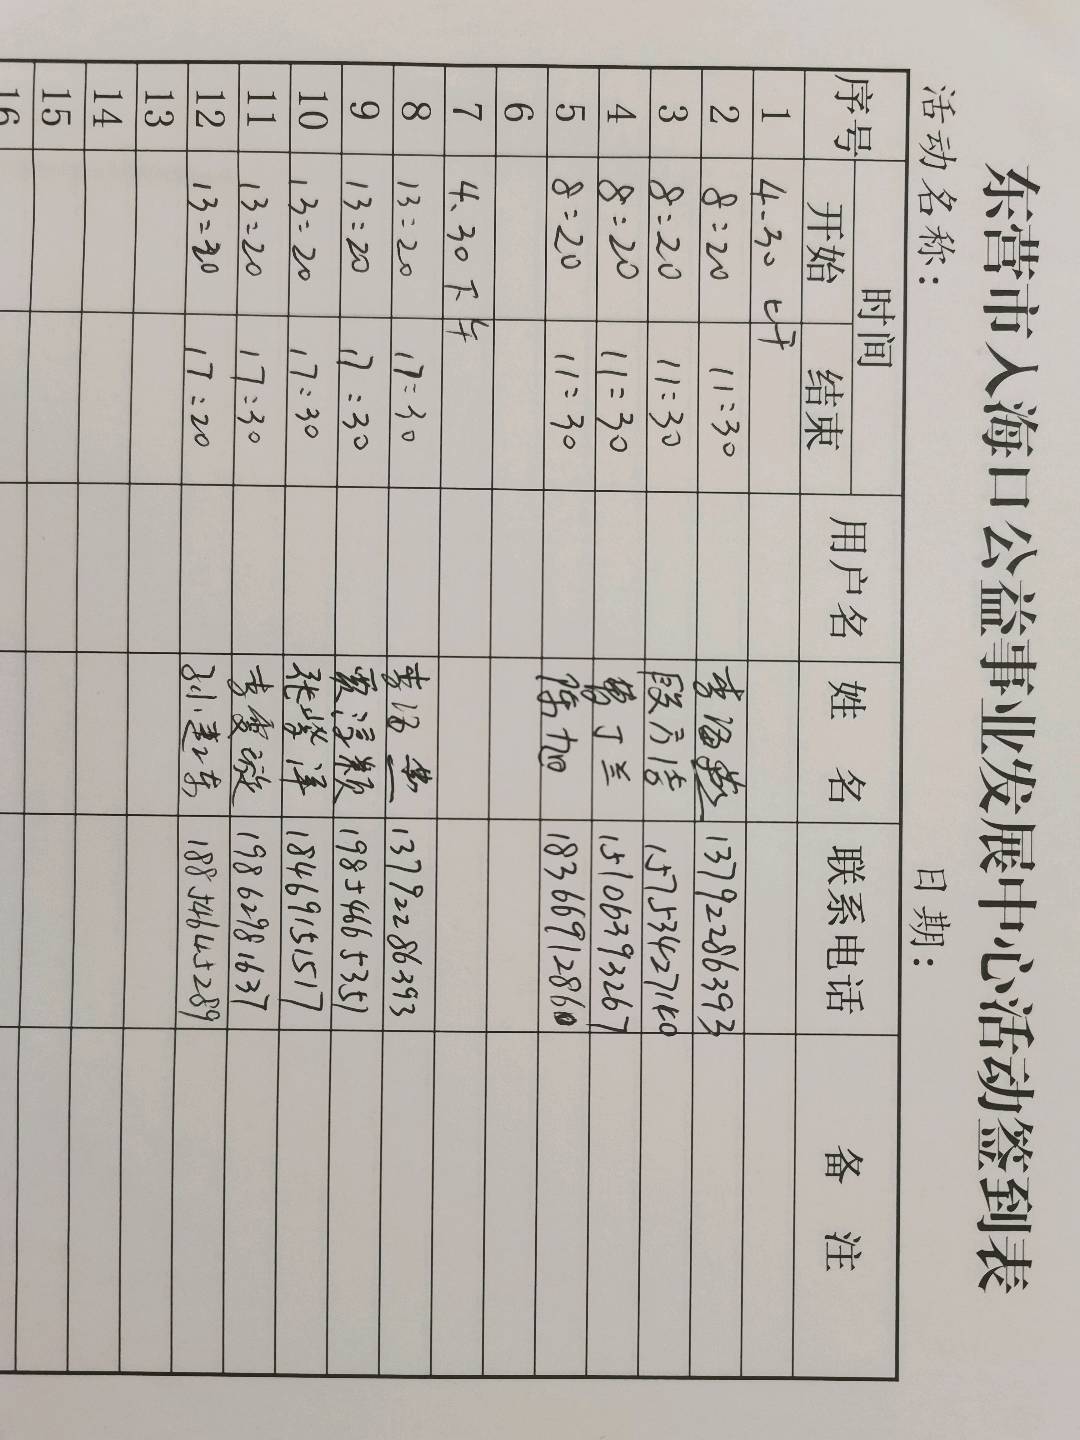 东营市人海口公益事业发展中心活动签到表
活动名称： 日期：
序号 时间 用户名 姓名 联系电话 备注
开始 结束
1 4.30 上午
2 8:20 11:30 13792286393
3 8:20 11:30 15753427140
4 8:20 11:30 15106393267
5 8:20 11:30 18366912860
6
7 4.30 下午
8 13:20 17:30 13792286393
9 13:20 17:30 19854665351
10 13:20 17:30 张紫泽 18469151517
11 13:20 17:30 19862981637
12 13:20 17:20 18854645289
13
14
15
16